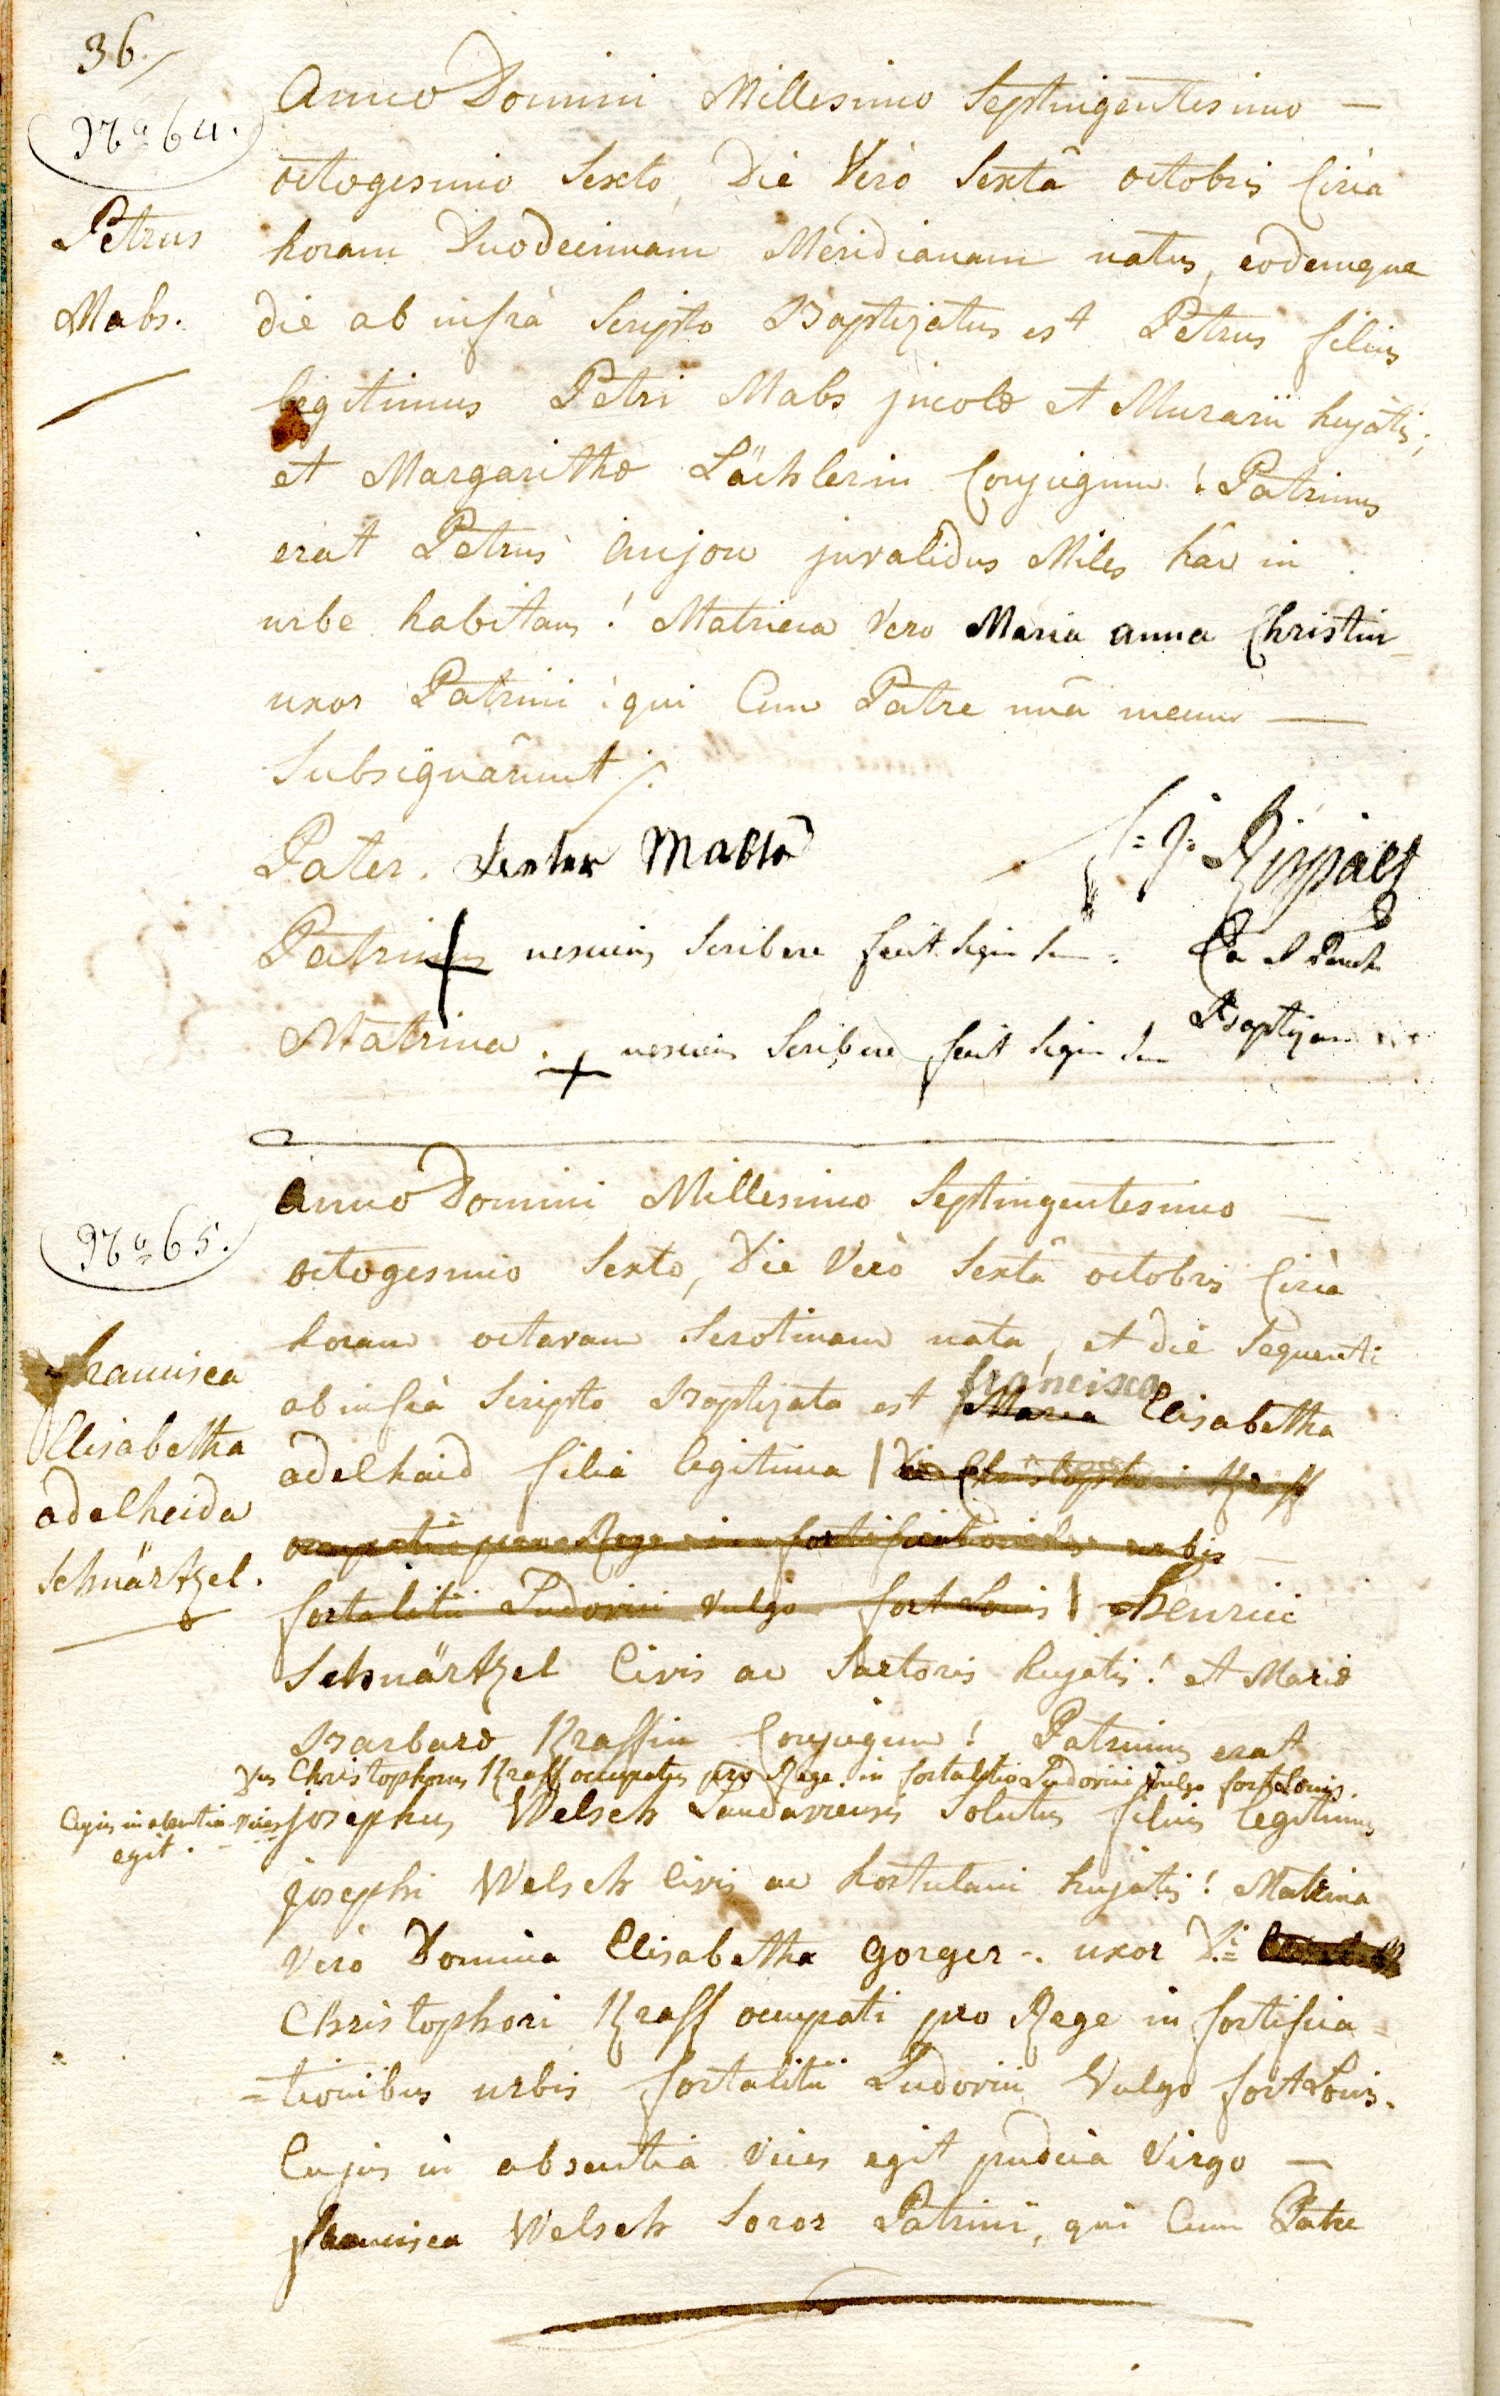 36.
Nro 64.
Petrus
Mabs.
Anno Domini Millesimo Septingentesimo —
octogesimo Sexto, Die Verò Sextâ octobris Circa
horam Duodecimam Meridianam natus, eodemque
die ab infrà Scripto Baptizatus est Petrus filius
legitimus Petri Mabs jncolæ et Murarii hujatis;
et Margarithæ Lächlerin Conjugum! Patrinus
erat Petrus anjou jnvalidus Miles hâc in
urbe habitans! Matrina Vero Maria anna Christin
uxor Patrini! qui Cum Patre unâ mecum —
Subsignârunt /.
Pater. Peter Mabs
Patrinus + nesciens Scribere fecit Sign Su
Matrina. + nesciens Scribere fecit Sign Su
Baptizans
Nro 65.
francisca
Elisabetha
adelheida
Schnärtzel.
Anno Domini Millesimo Septingentesimo —
octogesimo Sexto, Die Verò Sextâ octobris Circà
horam octavam Serotinam nata, et die Sequenti
francisca
ab infrà Scripto Baptizata est Maria Elisabetha
adelhaid filia legitima | Di Christophori Kraff
occupati pro Rege in fortificationibus urbis —
fortalitii Ludovici Vulgo fort Louis | Henrici
Schnärtzel Civis ac Sartoris hujatis! et Mariæ
Barbaræ Kraffin Conjugum! Patrinus erat
Dus Christophorus Kraff occupatus pro Rege in fortalitio Ludovici Vulgo fort Louis.
Cujus in absentia vices
egit.
josephus Welsch Landaviensis Solutus filius legitimus
josephi Welsch Civis ac hortulani hujatis! Matrina
Verò Domina Elisabetha gorger -. uxor Di
Christophori Kraff occupati pro Rege in fortifica=
=tionibus urbis fortalitii Ludovici Vulgo fort Louis.
Cujus in absentia vices egit pudica Virgo —
francisca Welsch Soror Patrini, qui Cum Patre